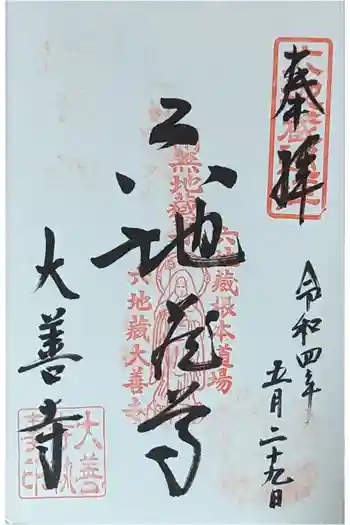 奉拝
令和四年
五月二十九日
六地蔵尊
大善寺
無地蔵
六地蔵根本道場
六地蔵大善寺
大善